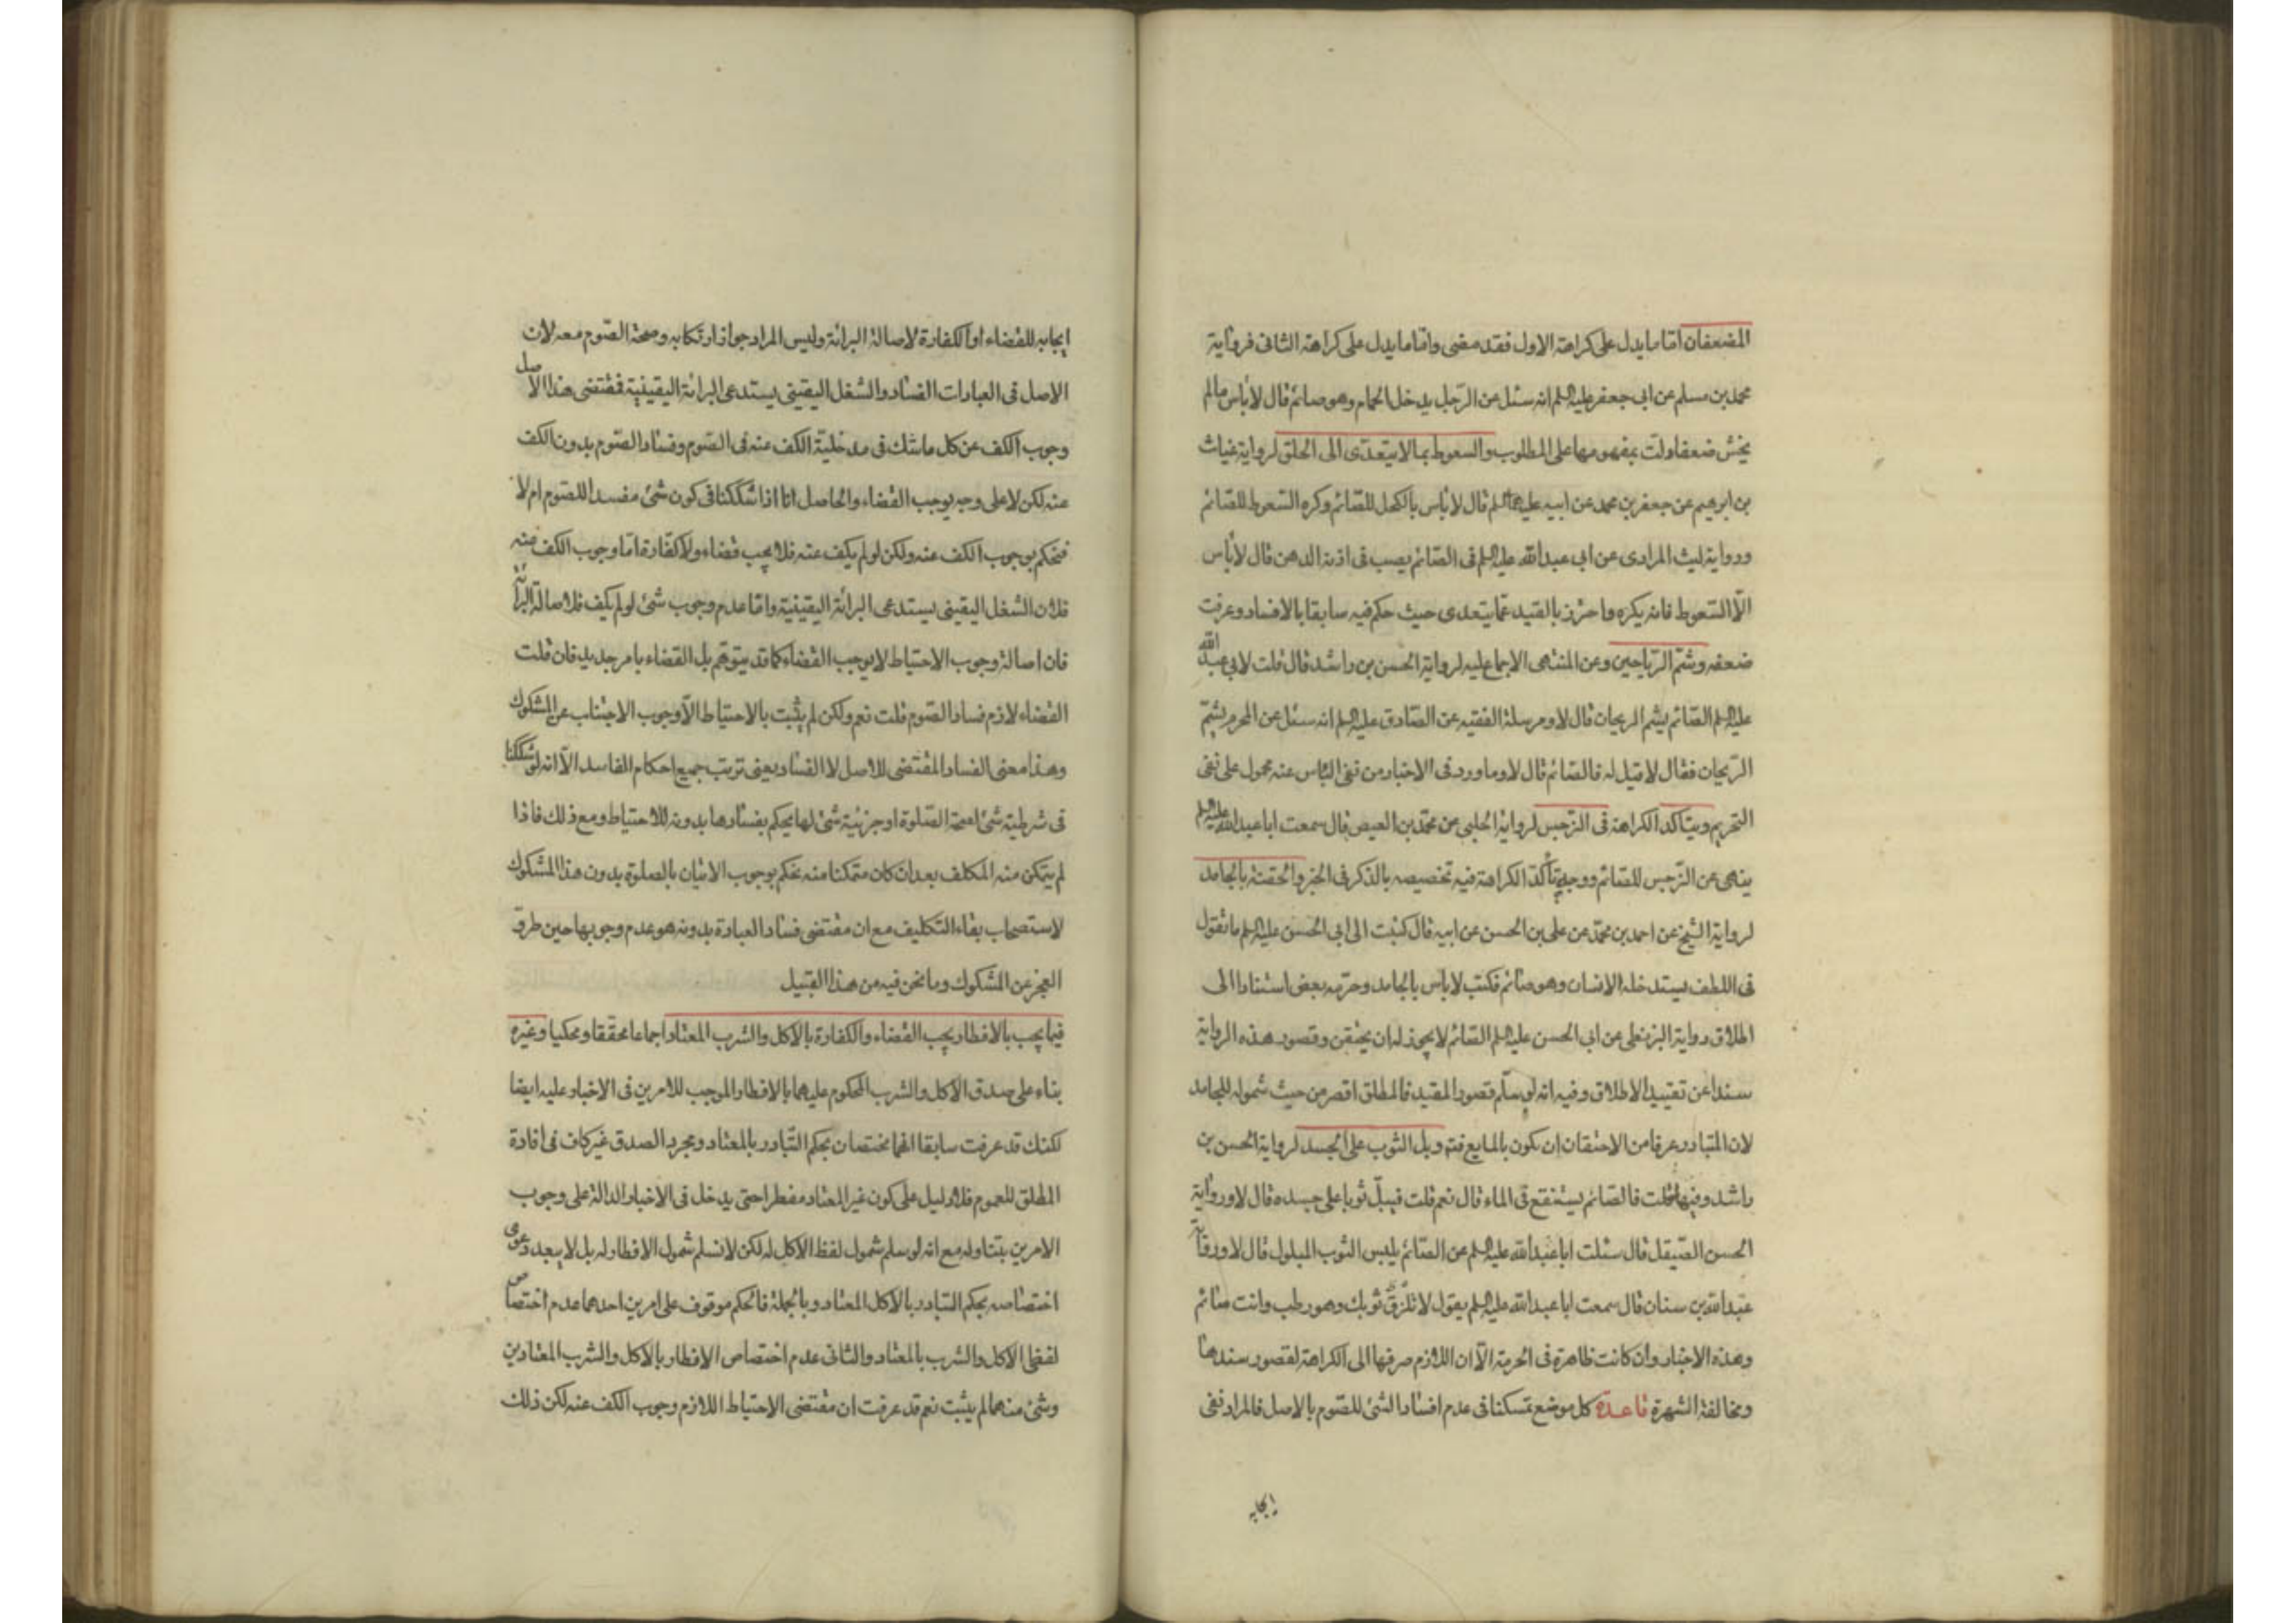 المضعفان امّا ما يدل على كراهة الاول فقد مضى وامّا ما يدل على كراهة الثانى فرواية
محمد بن مسلم عن ابى جعفر عليه السلم انه سئل عن الرّجل يدخل الحمام وهو صائم قال لا بأس ما لم
يخش ضعفا دلت بمفهومها على المطلوب والسعوط بما لا يتعدّى الى الحلق لرواية غياث
بن ابرهيم عن جعفر بن محمد عن ابيه عليهما السلم قال لا بأس بالكحل للصّائم وكره السّعوط للصّائم
ورواية ليث المرادى عن ابى عبد الله عليه السلم فى الصّائم يصب فى اذنه الدهن قال لا بأس
الّا السّعوط فانه يكره واحترز بالقيد عمّا يتعدى حيث حكم فيه سابقا بالافساد وعرفت
ضعفه وشمّ الرّياحين وعن المنتهى الاجماع عليه لرواية الحسن بن راشد قال قلت لابى عبد الله
عليه السلم الصّائم يشم الريحان قال لا ومرسلة الفقيه عن الصّادق عليه السلم انه سئل عن المحرم يشمّ
الرّيحان فقال لا قيل له فالصّائم قال لا وما ورد فى الاخبار من نفى البأس عنه محمول على نفى
التحريم ويتأكد الكراهة فى النرجس لرواية الحلبى عن محمّد بن العيص قال سمعت ابا عبد الله عليه السلم
ينهى عن النرجس للصّائم ووجه تأكّد الكراهة فيه تخصيصه بالذكر فى الخبر والحقنة بالجامد
لرواية الشّيخ عن احمد بن محمّد عن على بن الحسن عن ابيه قال كتبت الى ابى الحسن عليه السلم ما تقول
فى اللطف يستدخله الانسان وهو صائم فكتب لا بأس بالجامد وحرّمه بعض استنادا الى
اطلاق رواية البزنطى عن ابى الحسن عليه السلم الصّائم لا يجوز له ان يحتقن وقصور هذه الرواية
سندا عن تقييد الاطلاق وفيه انه لو سلّم قصور المقيد فالمطلق اقصر من حيث شموله للجامد
لان المتبادر عرفا من الاحتقان ان يكون بالمايع فتم وبل الثوب على الجسد لرواية الحسن بن
راشد وفيها قلت فالصّائم يستنقع فى الماء قال نعم قلت فيبلّ ثوبا على جسده قال لا ورواية
الحسن الصّيقل قال سئلت ابا عبد الله عليه السلم عن الصّائم يلبس الثوب المبلول قال لا ورواية
عبد الله بن سنان قال سمعت ابا عبد الله عليه السلم يقول لا تلزق ثوبك وهو رطب وانت صائم
وهذه الاخبار وان كانت ظاهرة فى الحرمة الّا ان اللازم صرفها الى الكراهة لقصور سندها
ومخالفة الشهرة قاعدة كل موضع تمسكنا فى عدم افساد الشئ للصّوم بالاصل فالمراد نفى
ايجابه
ايجابه للقضاء او الكفارة لاصالة البرائة وليس المراد جواز ارتكابه وصحة الصّوم معه لان
الاصل فى العبادات الفساد والشغل اليقينى يستدعى البرائة اليقينية فمقتضى هذا الاصل
وجوب الكف عن كل ما شك فى مدخليّة الكف عنه فى الصّوم وفساد الصّوم بدون الكف
عنه لكن لا على وجه يوجب القضاء والحاصل انا اذا شككنا فى كون شئ مفسدا للصّوم ام لا
فنحكم بوجوب الكف عنه ولكن لو لم يكف عنه فلا يجب قضاء ولا كفّارة امّا وجوب الكف عنه
فلان الشغل اليقينى يستدعى البرائة اليقينية وامّا عدم وجوب شئ لو لم يكف فلاصالة البرائة
فان اصالة وجوب الاحتياط لا يوجب القضاء كما قد يتوهّم بل القضاء بامر جديد فان قلت
القضاء لازم فساد الصّوم قلت نعم ولكن لم يثبت بالاحتياط الّا وجوب الاجتناب عن المشكوك
وهذا معنى الفساد المقتضى للاصل لا الفساد بمعنى ترتب جميع احكام الفاسد الّا انه لو شككنا
فى شرطية شئ لصحة الصّلوة او جزئية شئ لها يحكم بفسادها بدونه للاحتياط ومع ذلك فاذا
لم يتمكن منه المكلف بعد ان كان متمكنا منه نحكم بوجوب الاتيان بالصلوة بدون هذا المشكوك
لاستصحاب بقاء التكليف مع ان مقتضى فساد العبادة بدونه هو عدم وجوبها حين طرق
العجز عن المشكوك وما نحن فيه من هذا القبيل
فيما يجب بالافطار يجب القضاء والكفارة بالاكل والشرب المعتاد اجماعا محقّقا ومحكيا وغيره
بناء على صدق الاكل والشرب المحكوم عليهما بالافطار الموجب للامرين فى الاخبار عليه ايضا
لكنك قد عرفت سابقا انهما يختصان بحكم التّبادر بالمعتاد ومجرد الصدق غير كاف فى افادة
المطلق للعموم فلا دليل على كون غير المعتاد مفطرا حتى يدخل فى الاخبار الدالة على وجوب
الامرين بتناوله مع انه لو سلم شمول لفظ الاكل له لكن لا نسلم شمول الافطار له بل لا يبعد دعوى
اختصاصه بحكم التبادر بالاكل المعتاد وبالجملة فالحكم موقوف على امرين احدهما عدم اختصاص
لفظى الاكل والشرب بالمعتاد والثانى عدم اختصاص الافطار بالاكل والشرب المعتادين
وشئ منهما لم يثبت نعم قد عرفت ان مقتضى الاحتياط اللازم وجوب الكف عنه لكن ذلك